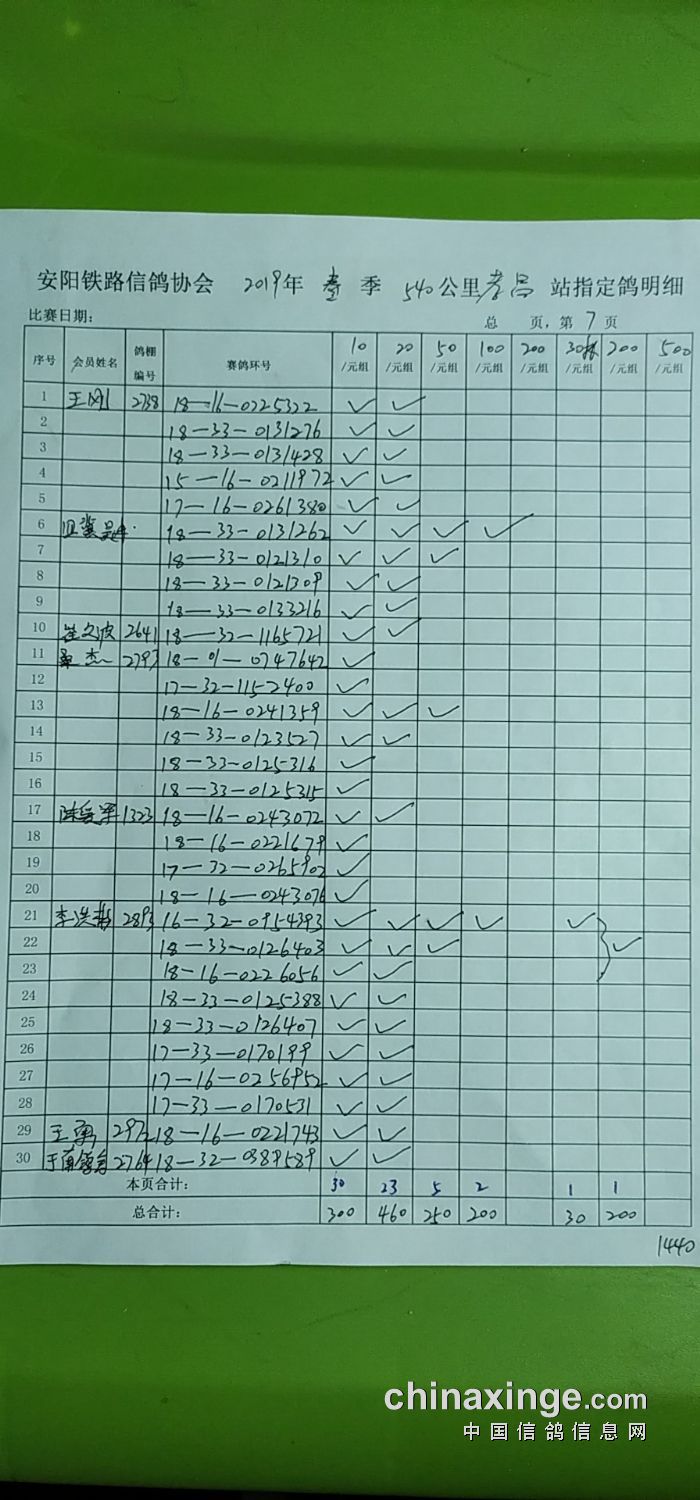 安阳铁路信鸽协会 2019年 春 季 540公里孝昌 站指定鸽明细
比赛日期: 总 页,第 7 页
序号 会员姓名 鸽棚编号 赛鸽环号 10/元组 20/元组 50/元组 100/元组 200/元组 30/元组 200/元组 500/元组
1 王刚 2738 18-16-0225322 ✓ ✓
2 18-33-0131276 ✓ ✓
3 18-33-0131428 ✓ ✓
4 15-16-0211972 ✓ ✓
5 17-16-0261380 ✓ ✓
6 18-33-0131262 ✓ ✓ ✓ ✓
7 18-33-0121310 ✓ ✓ ✓
8 18-33-0121309 ✓ ✓
9 18-33-0133216 ✓ ✓
10 崔文波 2641 18-32-1165721 ✓ ✓
11 杰 2793 18-01-0747642 ✓
12 17-32-1152400 ✓
13 18-16-0241359 ✓ ✓ ✓
14 18-33-0123527 ✓ ✓
15 18-33-0125316 ✓
16 18-33-0125315 ✓
17 陈军 1323 18-16-0243072 ✓ ✓
18 18-16-0221679 ✓
19 17-32-0265902 ✓
20 18-16-0243076 ✓
21 李洪 2893 16-32-0954393 ✓ ✓ ✓ ✓ ✓
22 18-33-0126403 ✓ ✓ ✓ ✓
23 18-16-0226056 ✓ ✓
24 18-33-0125388 ✓ ✓
25 18-33-0126407 ✓ ✓
26 17-33-0170199 ✓ ✓
27 17-16-0256952 ✓ ✓
28 17-33-0170531 ✓ ✓
29 王勇 2972 18-16-0221743 ✓ ✓
30 2764 18-32-0389589 ✓ ✓
本页合计: 30 23 5 2 1 1
总合计: 300 460 250 200 30 200
1440
chinaxinge.com
中国信鸽信息网